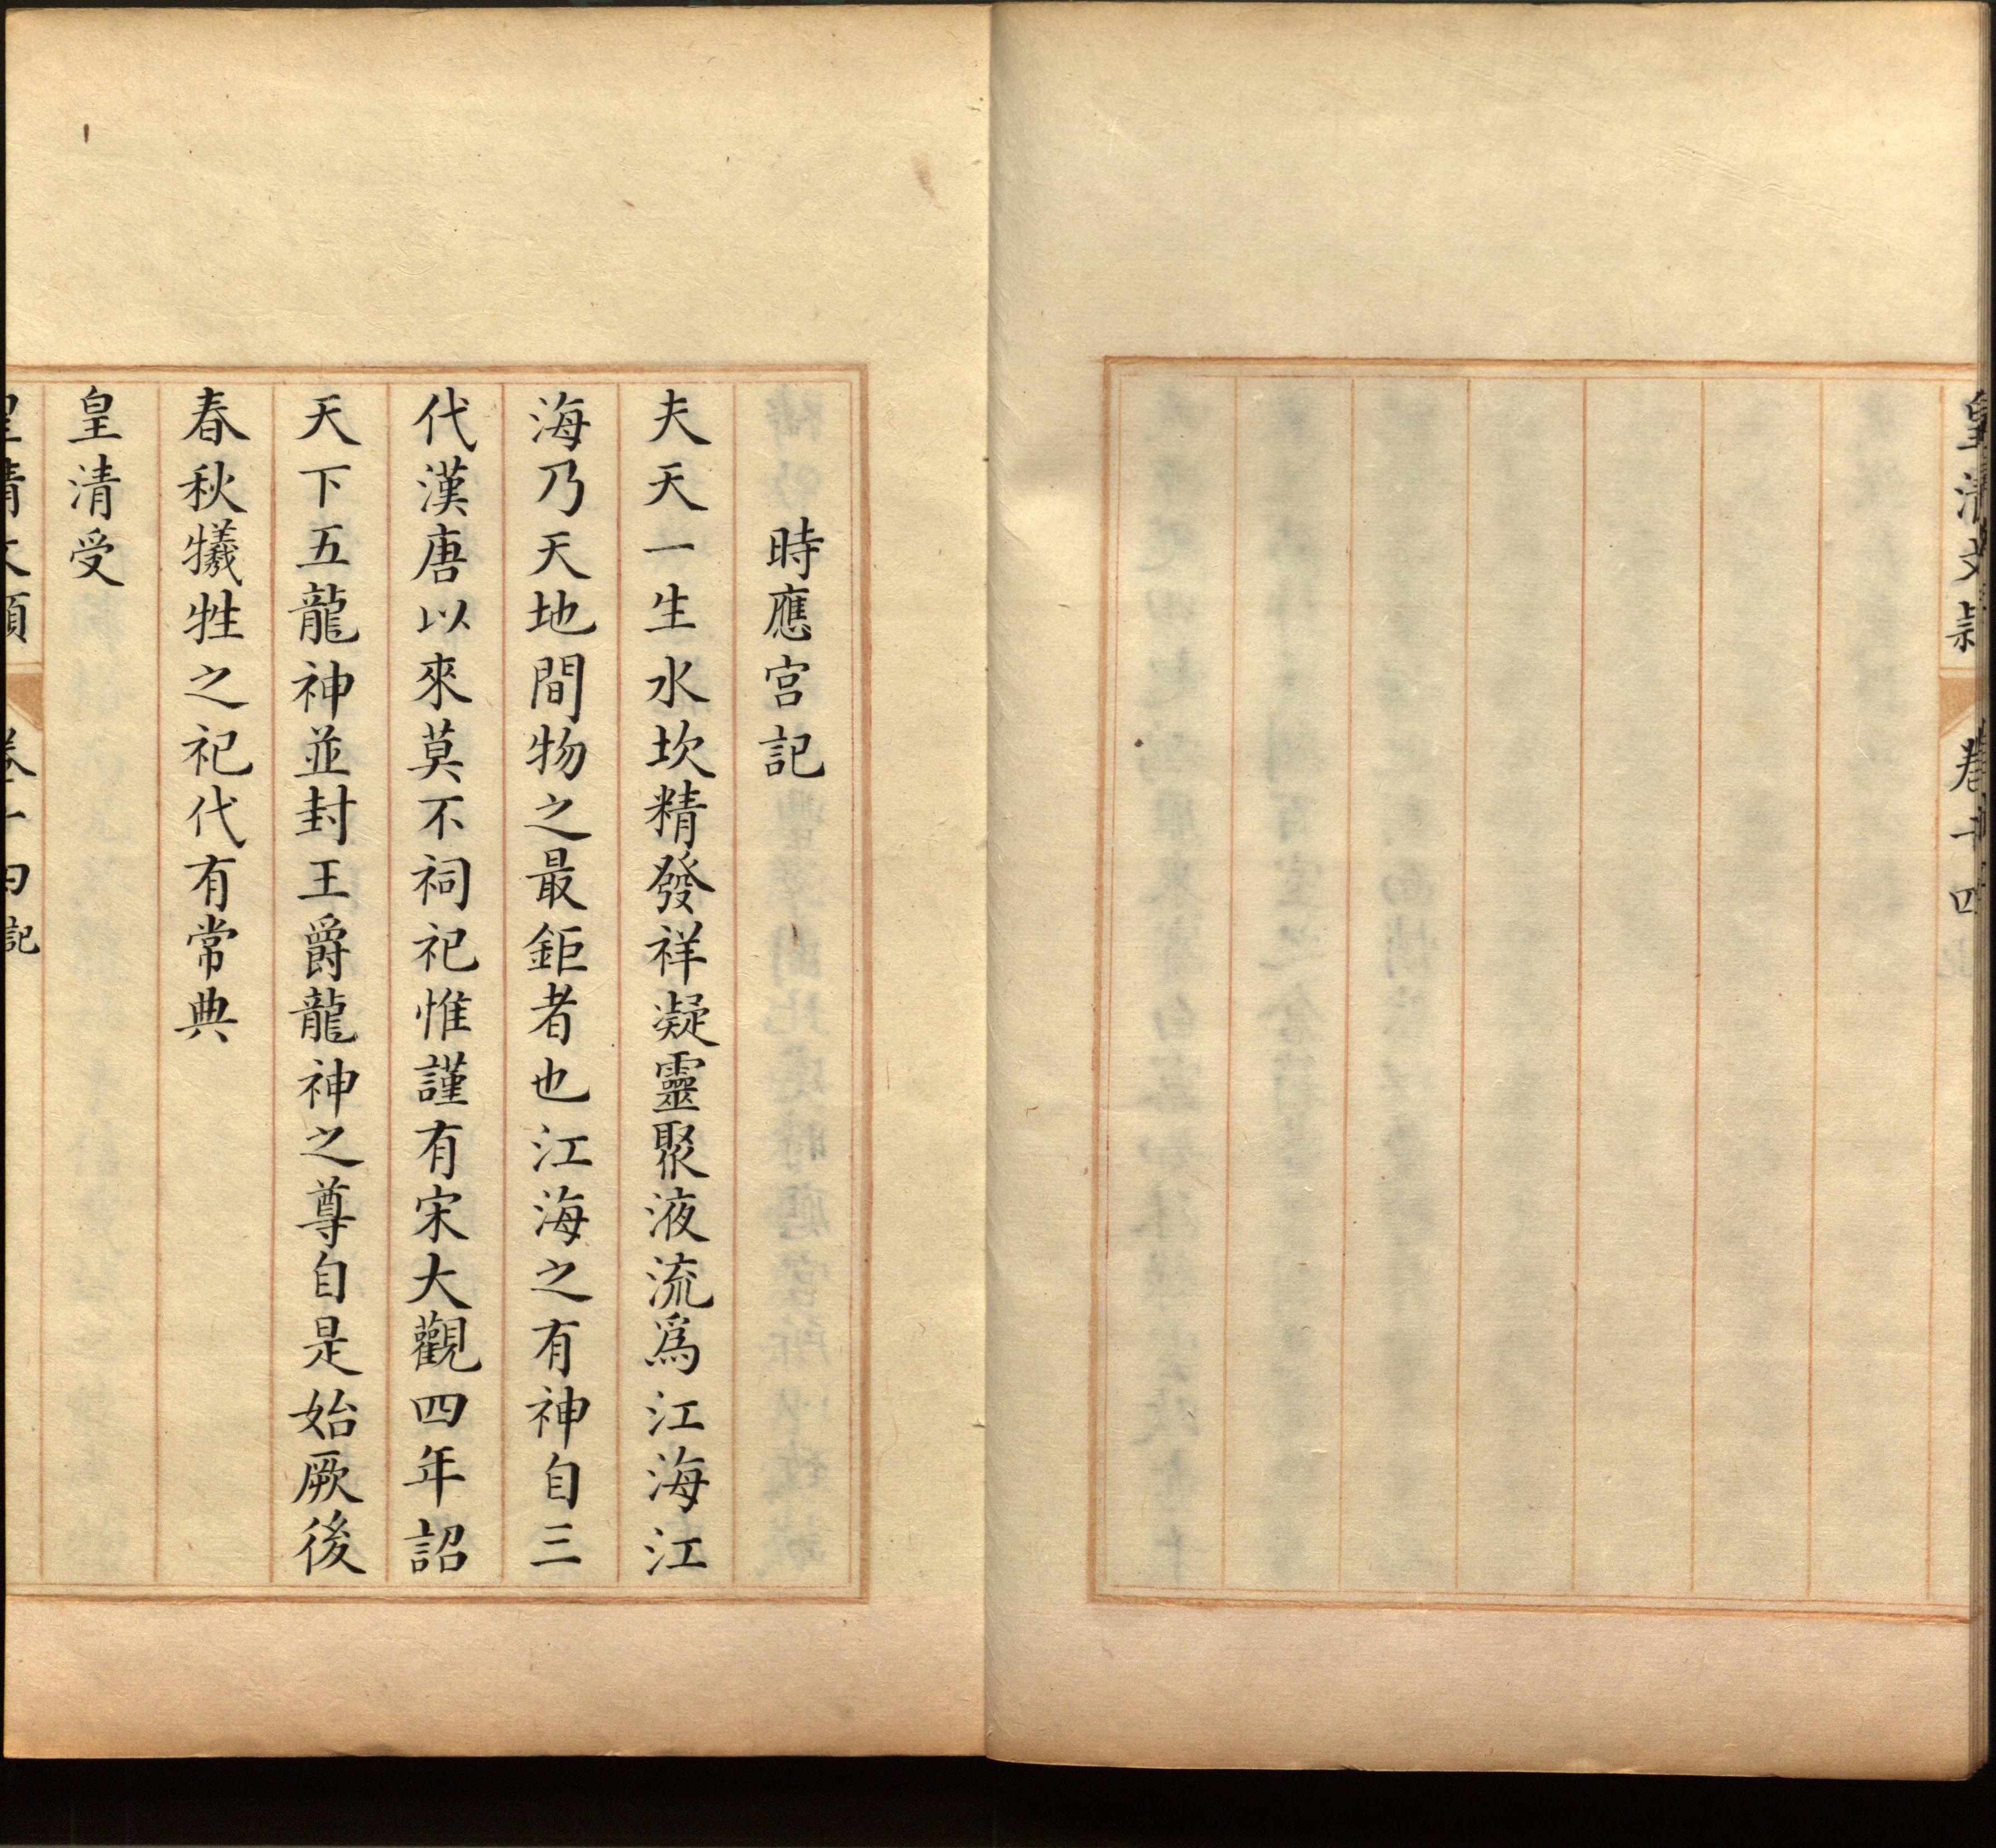 皇清文穎 卷十四
時應宮記
夫天一生水坎精發祥凝靈聚液流爲江海江
海乃天地間物之最鉅者也江海之有神自三
代漢唐以來莫不祠祀惟謹有宋大觀四年詔
天下五龍神並封王爵龍神之尊自是始厥後
春秋犧牲之祀代有常典
皇清受
皇清文穎 卷十四 記